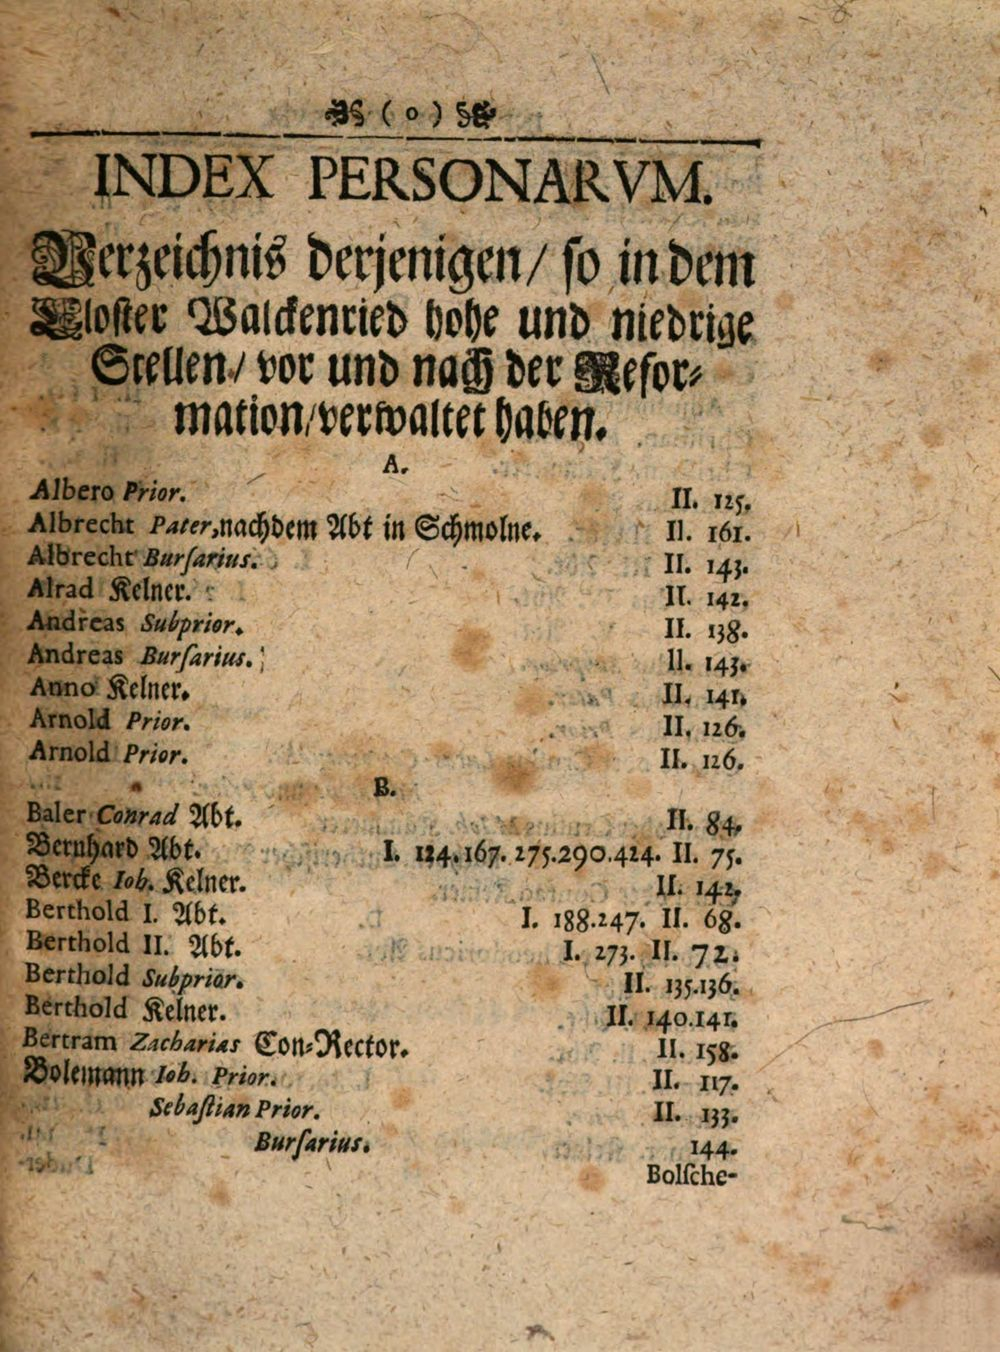 ( o )
INDEX PERSONARVM.
Verzeichnis derjenigen/ so in dem
Kloster Walckenried hohe und niedrige
Stellen/ vor und nach der Refor⸗
mation/verwaltet haben.
A.
Albero Prior. II. 125.
Albrecht Pater,nachdem Abt in Schmolne. II. 161.
Albrecht Burſarius. II. 143.
Alrad Kelner. II. 142.
Andreas Subprior. II. 138.
Andreas Burſarius. II. 143.
Anno Kelner. II. 141.
Arnold Prior. II. 126.
Arnold Prior. II. 126.
B.
Baler Conrad Abt. II. 84.
Bernhard Abt. I. 124.167.275.290.424. II. 75.
Bercke Ioh. Kelner. II. 142.
Berthold I. Abt. I. 188.247. II. 68.
Berthold II. Abt. I. 273. II. 72.
Berthold Subprior. II. 135.136.
Berthold Kelner. II. 140.141.
Bertram Zacharias Con⸗Rector. II. 158.
Bolemann Ioh. Prior. II. 117.
Sebaſtian Prior. II. 133.
Burſarius. 144.
Bolſche-